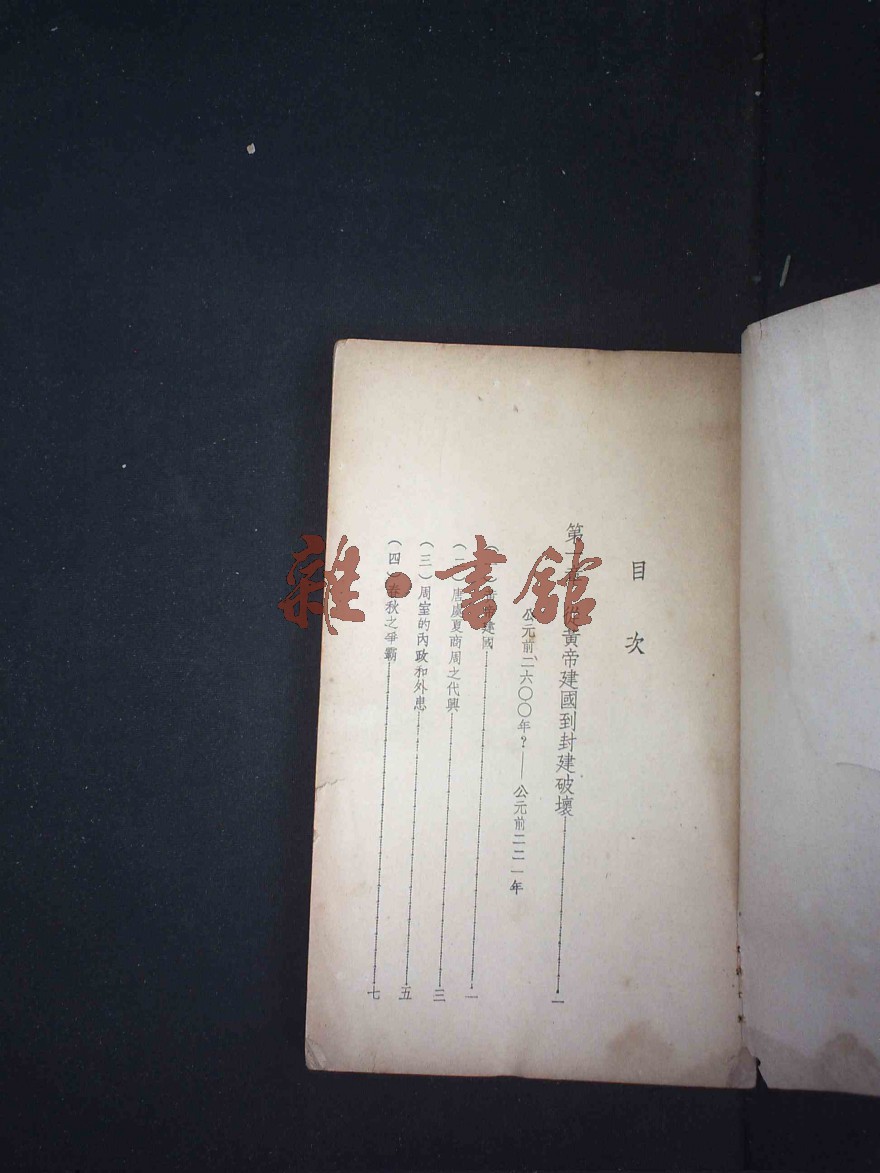 目次
第一 黃帝建國到封建破壞 一
公元前二六〇〇年？——公元前二二一年
建國 一
(二)唐虞夏商周之代興 三
(三)周室的內政和外患 五
(四)春秋之爭霸 七
雜·書館